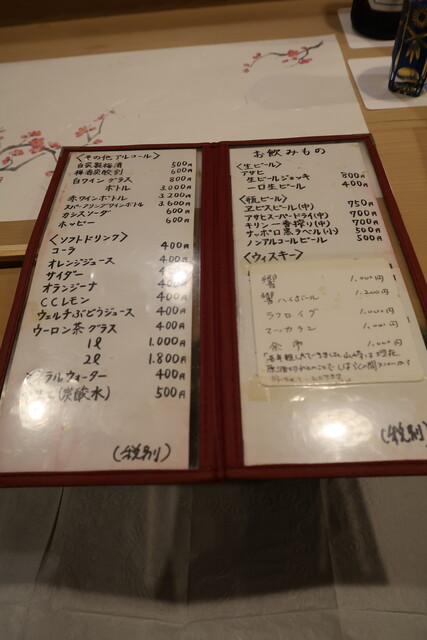 〈その他アルコール〉
自家製梅酒 500円
梅酒炭酸割 600円
白ワイン グラス 800円
ボトル 3,000円
赤ワインボトル 3,200円
スパークリングワインボトル 3,600円
カシスソーダ 600円
ホッピー 600円
〈ソフトドリンク〉
コーラ 400円
オレンジジュース 400円
サイダー 400円
オランジーナ 400円
CCレモン 400円
ウェルチぶどうジュース 400円
ウーロン茶 グラス 400円
1ℓ 1,000円
2ℓ 1,800円
ラルウォーター 400円
(炭酸水) 500円
(税別)
お飲みもの
〈生ビール〉
アサヒ
生ビールジョッキ 800円
一口生ビール 400円
〈瓶ビール〉
ヱビスビール(中) 750円
アサヒスーパードライ(中) 700円
キリン一番搾り(中) 700円
サッポロ黒ラベル(小) 500円
ノンアルコールビール 500円
〈ウィスキー〉
響 1,000円
響ハイボール 1,200円
ラフロイグ 1,000円
マッカラン 1,000円
余市 1,000円
(税別)